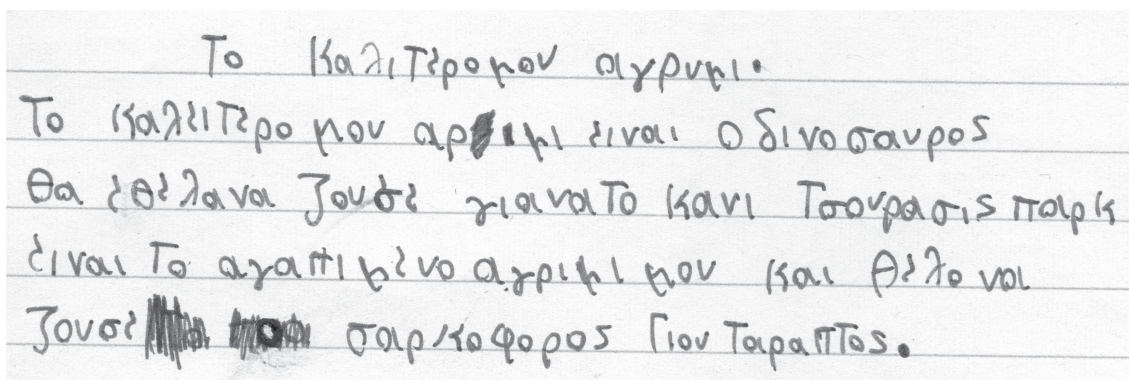 Το καλιτερομου αγρυμι.
Το καλειτερο μου αριμι ειναι ο δινοσαυρος
θα εθελανα ζουσε γιανατο κανι Τσουρασις παρκ
ειναι το αγαπιμενο αγριμι μου και θελο να
ζουσε σαρκοφορος Γιου Ταραπτος.